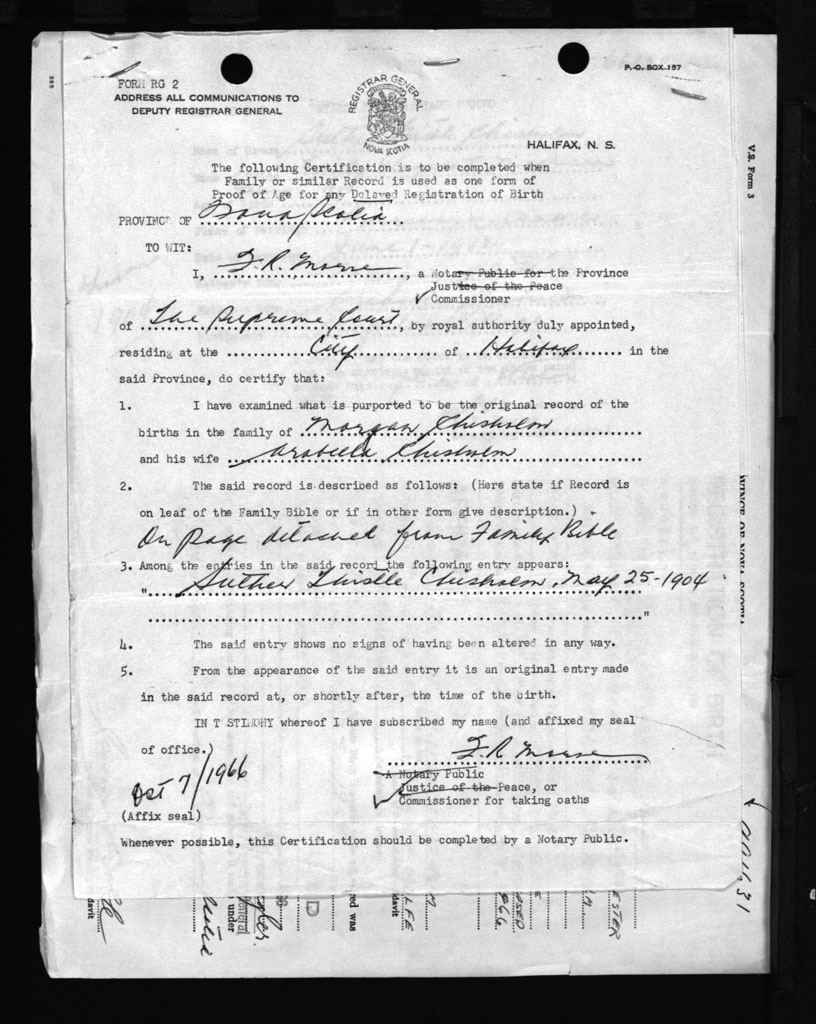 P.O. BOX 157
FORM RG 2
ADDRESS ALL COMMUNICATIONS TO
DEPUTY REGISTRAR GENERAL
REGISTRAR GENERAL
NOVA SCOTIA
HALIFAX, N. S.
V.S. Form 3
The following Certification is to be completed when
Family or similar Record is used as one form of
Proof of Age for any Delayed Registration of Birth
PROVINCE OF Nova Scotia
TO WIT:
I, F. R. Morse, a Notary Public for the Province
Justice of the Peace
✓ Commissioner
of The Supreme Court, by royal authority duly appointed,
residing at the City of Halifax in the
said Province, do certify that:
1. I have examined what is purported to be the original record of the
births in the family of Morgan Chisholm
and his wife Arabella Chisholm
2. The said record is described as follows: (Here state if Record is
on leaf of the Family Bible or if in other form give description.)
On page detached from Family Bible
3. Among the entries in the said record the following entry appears:
" Suther Thistle Chisholm, May 25-1904
"
4. The said entry shows no signs of having been altered in any way.
5. From the appearance of the said entry it is an original entry made
in the said record at, or shortly after, the time of the birth.
IN TESTIMONY whereof I have subscribed my name (and affixed my seal
of office.)
F. R. Morse
Oct 7/1966
A Notary Public
Justice of the Peace, or
✓ Commissioner for taking oaths
(Affix seal)
Whenever possible, this Certification should be completed by a Notary Public.